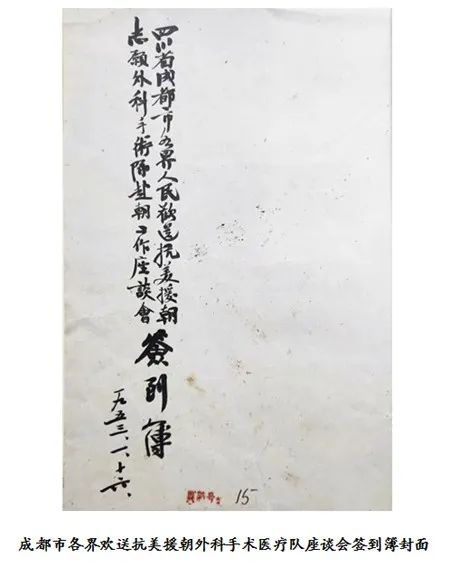 四川省成都市各界人民歡送抗美援朝
志願外科手術隊赴朝工作座談會
簽到簿
一九五三、一、十六、
15
成都市各界欢送抗美援朝外科手术医疗队座谈会签到簿封面